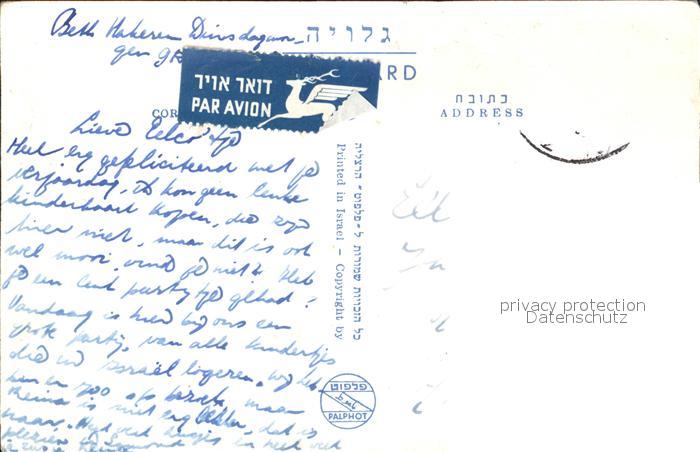 Beth Hakerem Dinsdagmor-
gen
גלויה
ARD
דואר אויר
PAR AVION
COR
כתובת
ADDRESS
Lieve Eelco'tje
Heel erg gefeliciteerd met je
verjaardag, Ik kon geen leuke
kinderkaart kopen, die zijn
hier niet, maar dit is ook
wel mooi, vind je niet? Heb
je een leuk partytje gehad?
Vandaag is hier bij ons een
grote partij, van alle kindertjes
die in Israël logeren. Wij heb-
ben er 700 op bezoek, maar
Reina is niet erg lekker, dat is
naar. veel kusjes en heel veel
plezier
כל הזכויות שמורות ל-פלפוט - הרצליה
Printed in Israel - Copyright by
פלפוט
PALPHOT
privacy protection
Datenschutz